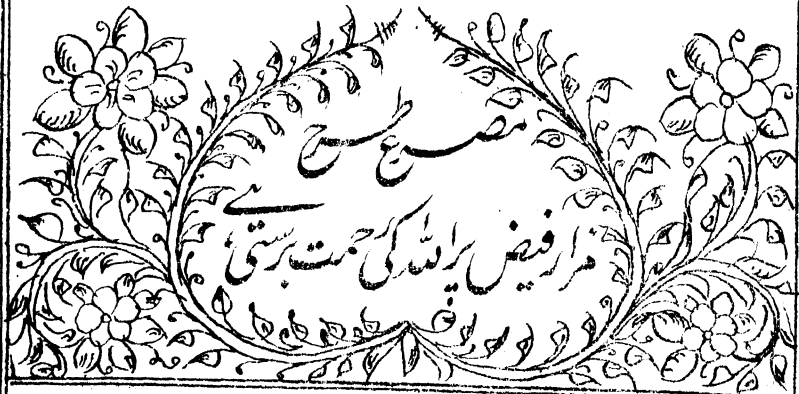 مصرع طرح
مزار فیض پر اللہ کی رحمت برستی ہے